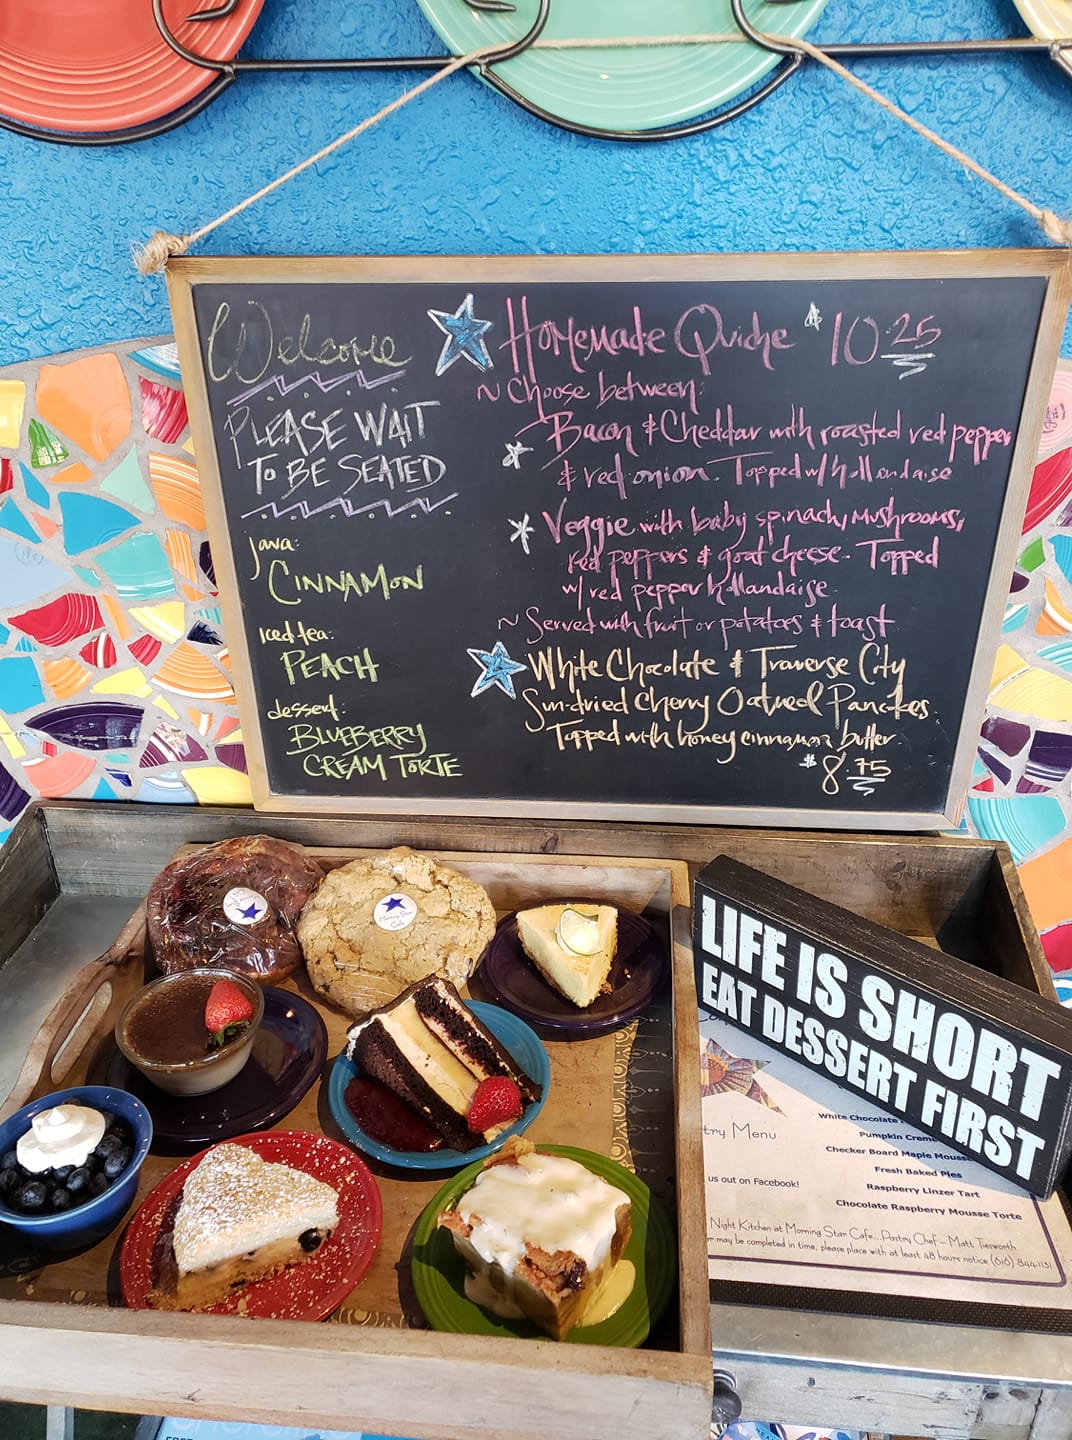 Welcome
PLEASE WAIT
TO BE SEATED
java:
CINNAMON
Iced tea:
PEACH
dessert:
BLUEBERRY
CREAM TORTE
Homemade Quiche $10.25
~ Choose between:
Bacon & Cheddar with roasted red pepper
& red onion. Topped w/ hollandaise
Veggie with baby spinach, mushrooms,
red peppers & goat cheese. Topped
w/ red pepper hollandaise.
~ Served with fruit or potatoes & toast
White Chocolate & Traverse City
Sun-dried Cherry Oatmeal Pancakes.
Topped with honey cinnamon butter.
$8.75
Morning Star
Cafe
LIFE IS SHORT
EAT DESSERT FIRST
White Chocolate
Pumpkin Creme
Checker Board Maple Mousse
Fresh Baked Pies
Raspberry Linzer Tart
Chocolate Raspberry Mousse Torte
try Menu
us out on Facebook!
Night Kitchen at Morning Star Cafe...Pastry Chef - Matt
r may be completed in time, please place with at least 48 hours notice (616) 844-1131